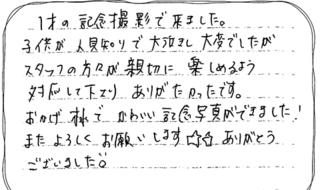 1才の記念撮影で来ました。
子供が人見知りで大泣きし大変でしたが
スタッフの方々が親切に楽しめるよう
対応して下さりありがたかったです。
おかげ様でかわいい記念写真ができました!
またよろしくお願いします☆☆ありがとう
ございました